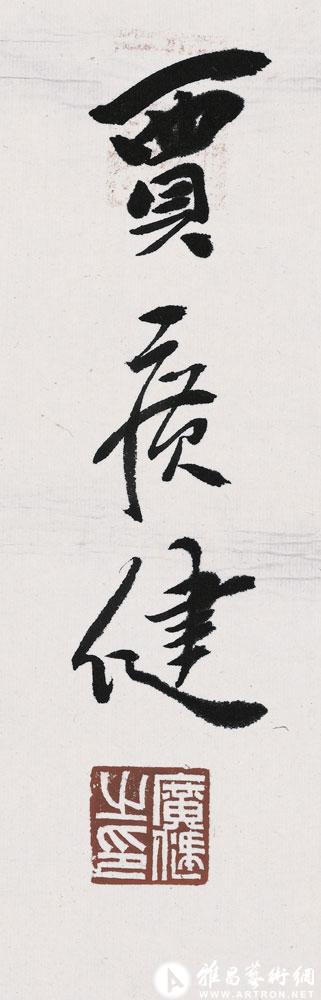 賈廣健
廣健之印
雅昌藝術網
WWW.ARTRON.NET